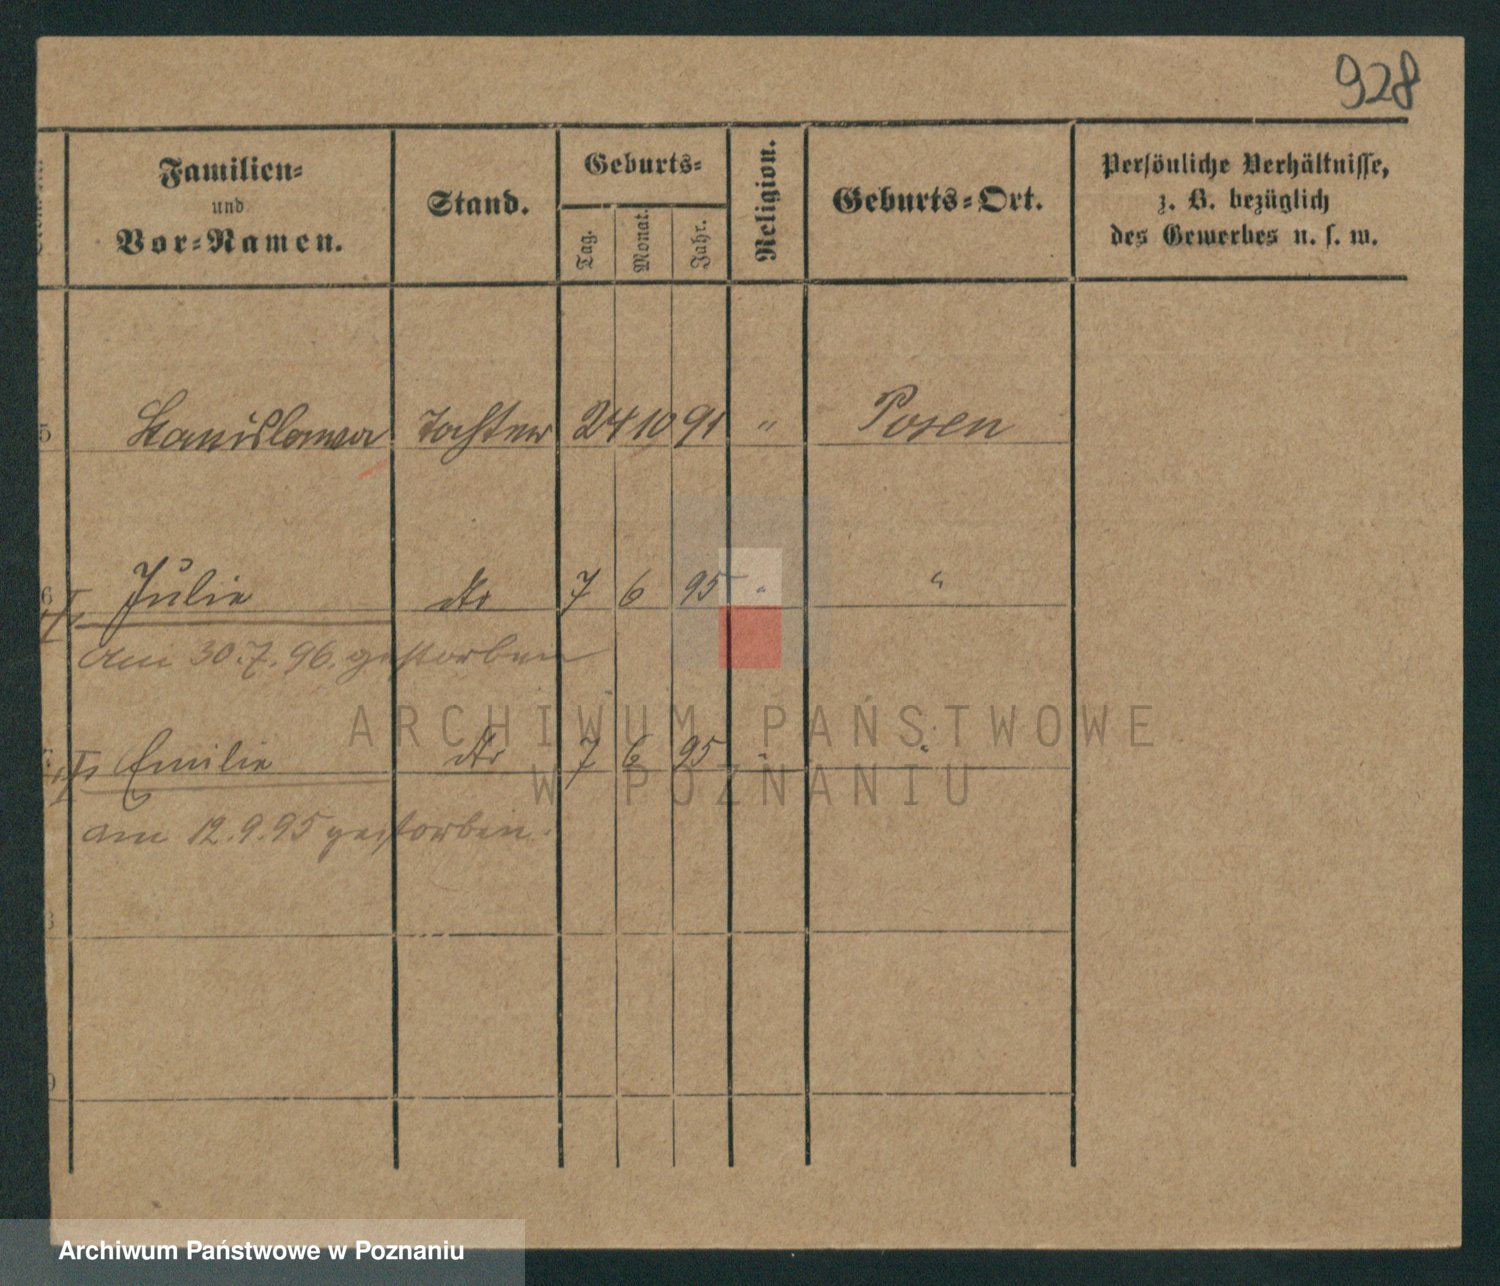 928
Familien-
und
Vor-Namen.
Stand.
Geburts-
Tag.
Monat.
Jahr.
Religion.
Geburts-Ort.
Persönliche Verhältnisse,
z. B. bezüglich
des Gewerbes u. s. w.
5 Stanislawa Tochter 24 10 91 " Posen
6 Julie dto 7 6 95 " "
am 30.7.96. gestorben
Emilie dto 7 6 95 " "
am 12.9.95 gestorben.
ARCHIWUM PAŃSTWOWE
W POZNANIU
Archiwum Państwowe w Poznaniu